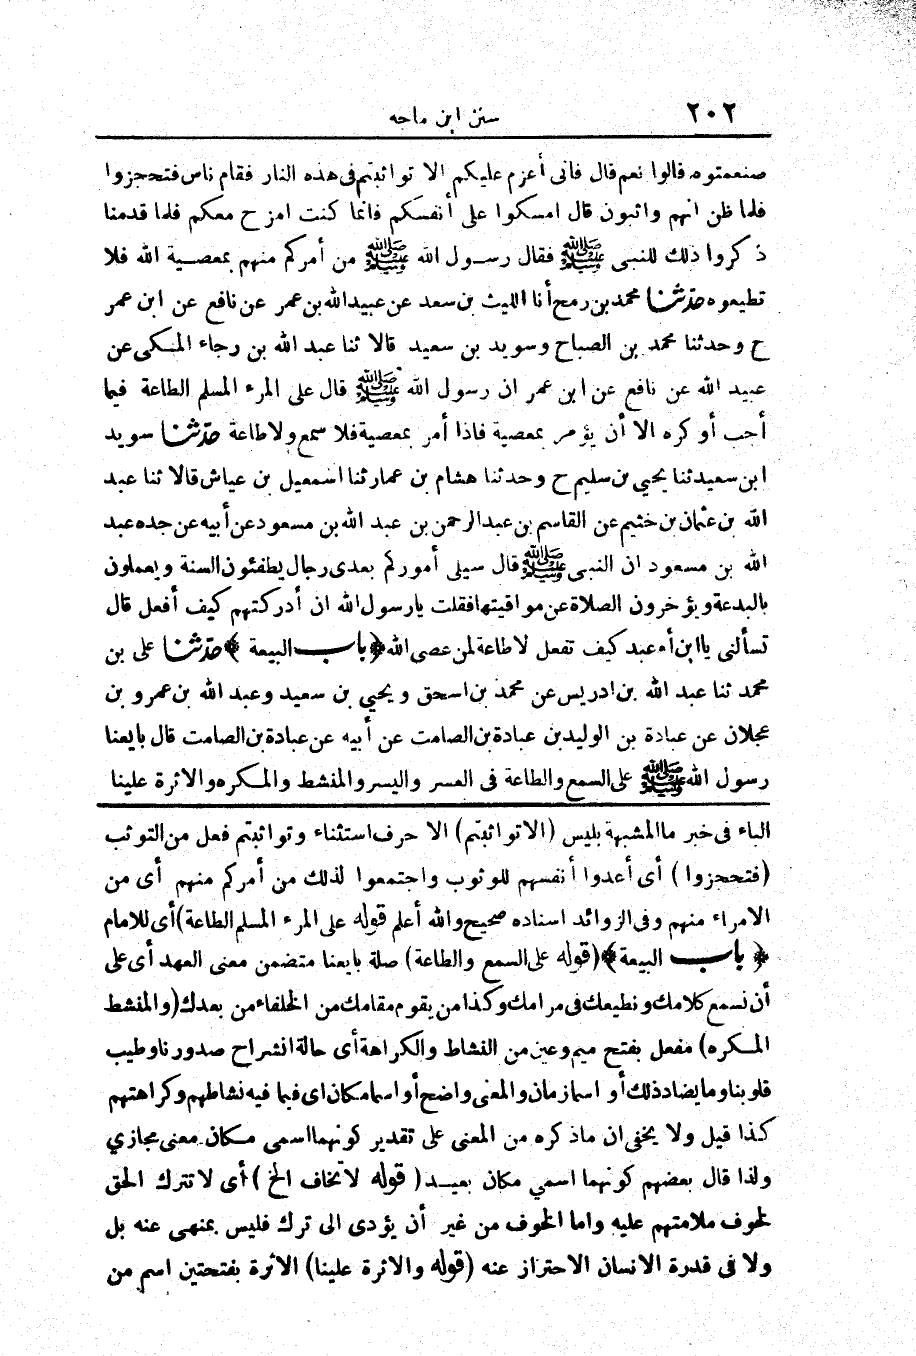 ٢٠٢
سنن ابن ماجه
صنعمتوه قالوا نعم قال فانى أعزم عليكم الا تواثبتم فى هذه النار فقام ناس فتحجزوا
فلما ظن انهم واثبون قال امسكوا على أنفسكم فانما كنت امزح معكم فلما قدمنا
ذكروا ذلك للنبى ﷺ فقال رسول الله ﷺ من أمركم منهم بمعصية الله فلا
تطيعوه حدثنا محمد بن رمح أنا الليث بن سعد عن عبيد الله بن عمر عن نافع عن ابن عمر
ح وحدثنا محمد بن الصباح وسويد بن سعيد قالا ثنا عبد الله بن رجاء المكى عن
عبيد الله عن نافع عن ابن عمر ان رسول الله ﷺ قال على المرء المسلم الطاعة فيما
أحب أو كره الا أن يؤمر بمعصية فاذا أمر بمعصية فلا سمع ولا طاعة حدثنا سويد
ابن سعيد ثنا يحيي بن سليم ح وحدثنا هشام بن عمار ثنا اسمعيل بن عياش قالا ثنا عبد
الله بن عثمان بن خثيم عن القاسم بن عبد الرحمن بن عبد الله بن مسعود عن أبيه عن جده عبد
الله بن مسعود ان النبى ﷺ قال سيلى أموركم بعدى رجال يطفئون السنة ويعملون
بالبدعة ويؤخرون الصلاة عن مواقيتها فقلت يا رسول الله ان أدركتهم كيف أفعل قال
تسألنى يا ابن أم عبد كيف تفعل لا طاعة لمن عصى الله ﴿باب البيعة﴾ حدثنا على بن
محمد ثنا عبد الله بن ادريس عن محمد بن اسحق ويحيي بن سعيد وعبد الله بن عمرو بن
عجلان عن عبادة بن الوليد بن عبادة بن الصامت عن أبيه عن عبادة بن الصامت قال بايعنا
رسول الله ﷺ على السمع والطاعة فى العسر واليسر والمنشط والمكره والاثرة علينا
الباء فى خبر ما المشبهة بليس (الا تواثبتم) الا حرف استثناء وتواثبتم فعل من التوثب
(فتحجزوا) أى أعدوا أنفسهم للوثوب واجتمعوا لذلك من أمركم منهم أى من
الامراء منهم وفى الزوائد اسناده صحيح والله أعلم قوله على المرء المسلم الطاعة) أى للامام
﴿باب البيعة﴾ (قوله على السمع والطاعة) صلة بايعنا متضمن معنى العهد أى على
أن نسمع كلامك ونطيعك فى مرامك وكذا من يقوم مقامك من الخلفاء من بعدك (والمنشط
المكره) مفعل بفتح ميم وعين من النشاط والكراهة أى حالة انشراح صدورنا وطيب
قلوبنا وما يضاد ذلك أو اسما زمان والمعنى واضح أو اسما مكان اى فيما فيه نشاطهم وكراهتهم
كذا قيل ولا يخفى ان ما ذكره من المعنى على تقدير كونهما اسمى مكان معنى مجازي
ولذا قال بعضهم كونهما اسمي مكان بعيد (قوله لا نخاف الخ) أى لا نترك الحق
لخوف ملامتهم عليه واما الخوف من غير أن يؤدى الى ترك فليس بمنهى عنه بل
ولا فى قدرة الانسان الاحتراز عنه (قوله والاثرة علينا) الاثرة بفتحتين اسم من